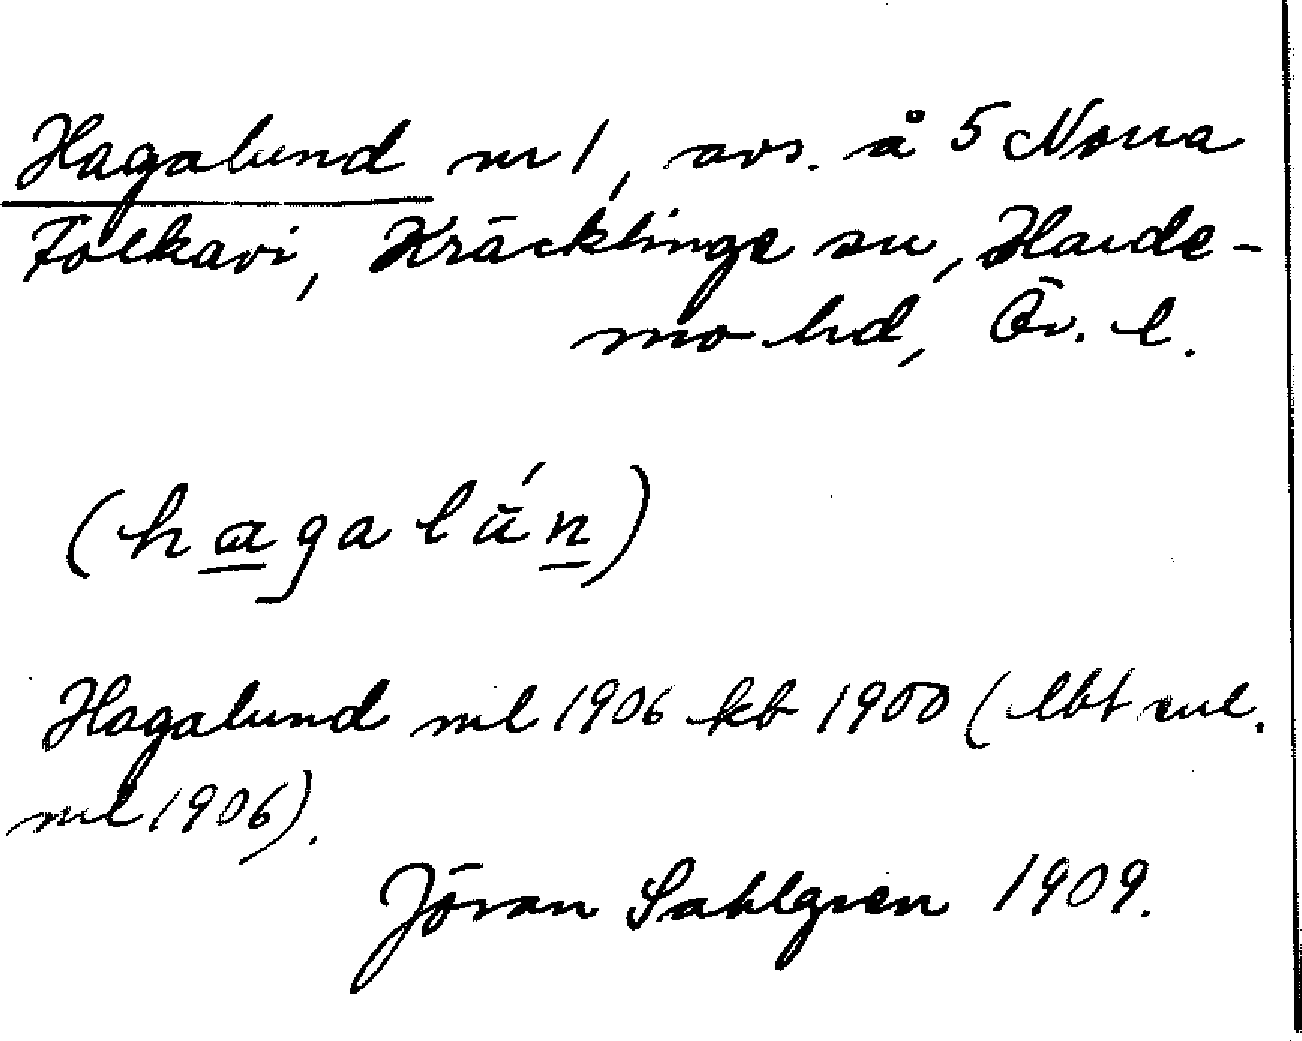 Hagalund nr 1, avs. å 5 Norra
Folkavi, Kräcklinge sn, Harde-
mo hd, Ör. l.
(hagalún)
Hagalund ml 1906 kb 1900 (lbt enl.
ml 1906).
Jöran Sahlgren 1909.